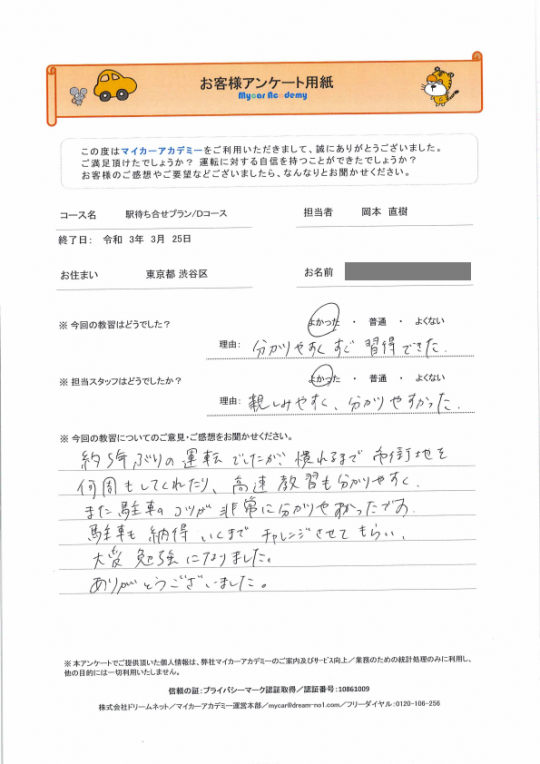 お客様アンケート用紙
Mycar Academy
この度はマイカーアカデミーをご利用いただきまして、誠にありがとうございました。
ご満足頂けたでしょうか? 運転に対する自信を持つことができたでしょうか?
お客様のご感想やご要望などございましたら、なんなりとお聞かせください。
コース名 駅待ち合せプラン/Dコース 担当者 岡本 直樹
終了日: 令和 3年 3月 25日
お住まい 東京都 渋谷区 お名前
※ 今回の教習はどうでした? よかった ・ 普通 ・ よくない
理由: 分かりやすくすぐ習得できた.
※ 担当スタッフはどうでしたか? よかった ・ 普通 ・ よくない
理由: 親しみやすく、分かりやすかった.
※ 今回の教習についてのご意見・ご感想をお聞かせください。
約5年ぶりの運転でしたが、慣れるまで市街地を
何周もしてくれたり、高速教習も分かりやすく.
また駐車のコツが非常に分かりやすかったです.
駐車も納得いくまでチャレンジさせてもらい、
大変勉強になりました。
ありがとうございました。
※ 本アンケートでご提供頂いた個人情報は、弊社マイカーアカデミーのご案内及びサービス向上/業務のための統計処理のみに利用し、
他の目的には一切利用いたしません。
信頼の証:プライバシーマーク認証取得/認証番号:10861009
株式会社ドリームネット/マイカーアカデミー運営本部/mycar@dream-no1.com/フリーダイヤル:0120-106-256